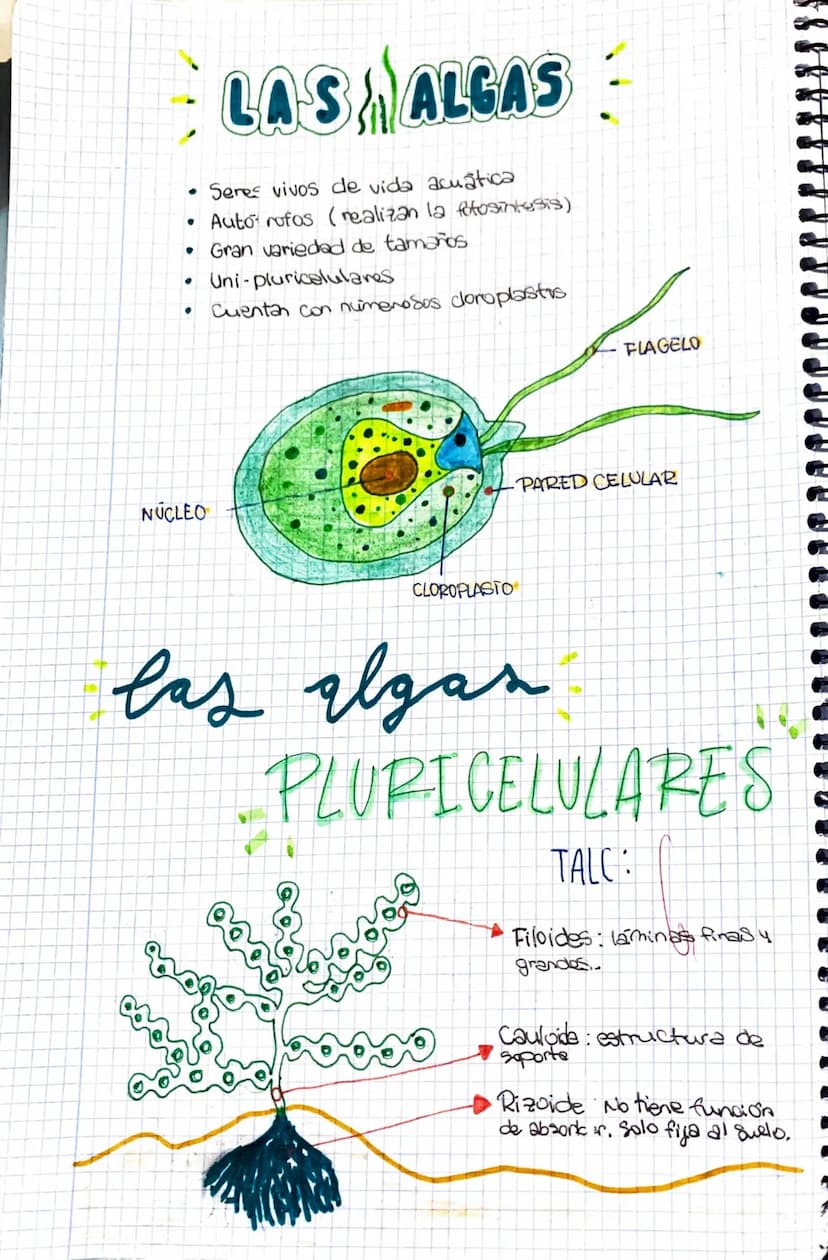 LAS ALGAS
• Seres vivos de vida acuática
• Autó rofos (realizan la fotosíntesis)
• Gran variedad de tamaños
• Uni-pluricelulares
• Cuentan con númerosos cloroplastos
FLAGELO
PARED CELULAR
NÚCLEO
CLOROPLASTO
las algas
PLURICELULARES
TALO:
Filoides: láminas finas y
grandes..
Cauloide: estructura de
soporte
Rizoide No tiene función
de absorber. Solo fija al suelo.